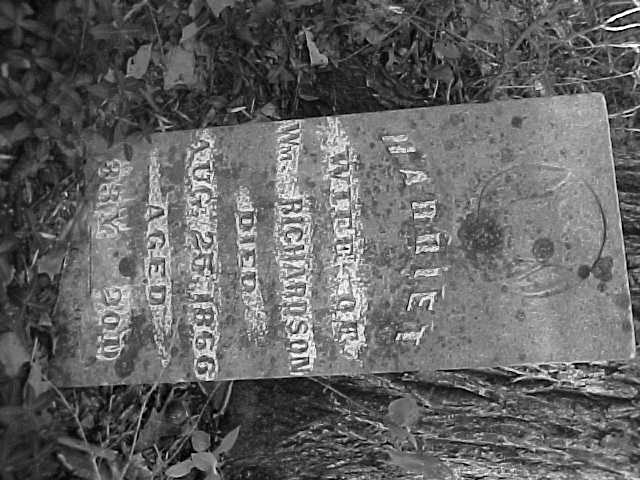 HARRIET
WIFE OF
WM RICHARDSON
DIED
AUG. 25, 1866
AGED